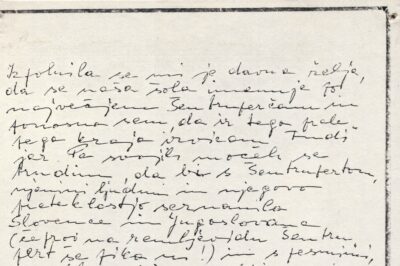 Izpolnila se mi je davna želja,
da se naša šola imenuje po
največjem Šentruperčanu in
ponosna sem, da iz tega
tega kraja izvira tudi
jaz. Po svojih močeh se
trudim, da bi s Šentrupertom,
njenimi ljudmi in njegovo
preteklostjo seznanila
Slovence in Jugoslovane
(če prav na zemljevidu Šentru
pert se pika ni!) in s pesmijo,